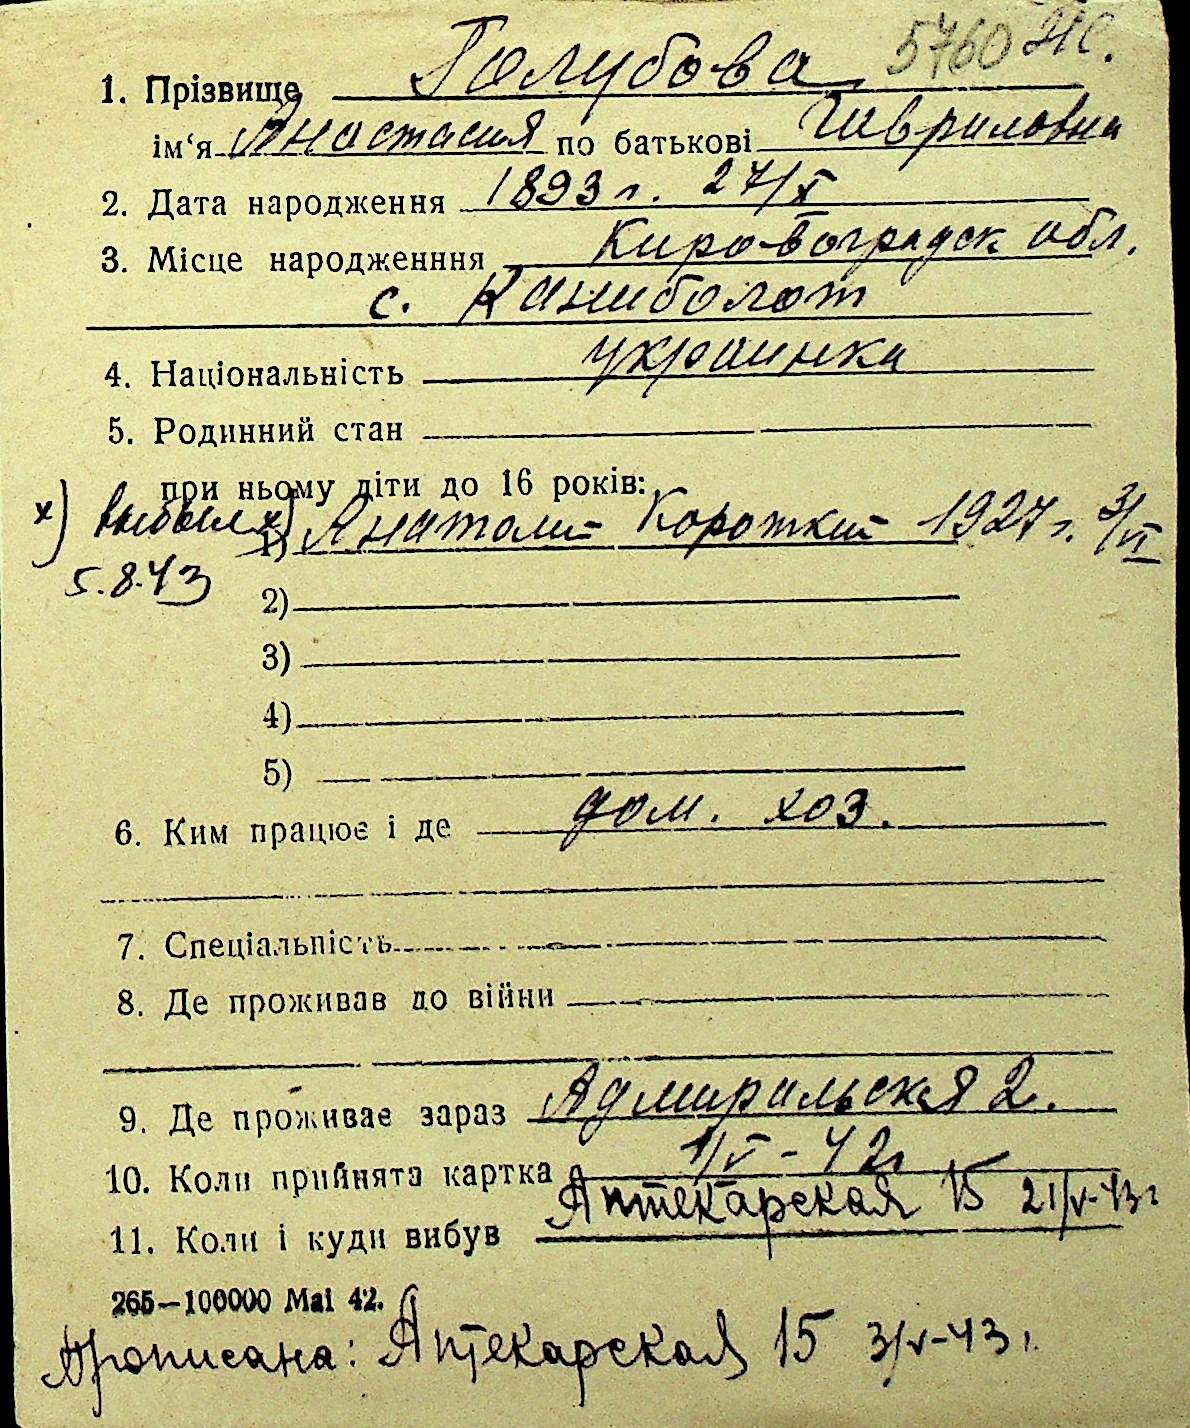 5760 НС.
1. Прізвище Голубова
ім'я Анастасия по батькові Гавриловна
2. Дата народження 1893 г. 27/X
3. Місце народженння Кировоградск обл.
с. Каниболот
4. Національність украинка
5. Родинний стан
при ньому діти до 16 років:
х) выбыл х) 1) Анатолий Короткий 1927 г. 3/VI
5.8.43
2)
3)
4)
5)
6. Ким працює і де дом. хоз.
7. Спеціальність
8. Де проживав до війни
9. Де проживає зараз Адмиральская 2.
10. Коли прийнята картка 1/V - 42 г
Аптекарская 15 21/V-43 г
11. Коли і куди вибув
265—100000 Mai 42.
Прописана: Аптекарская 15 3/V-43 г.